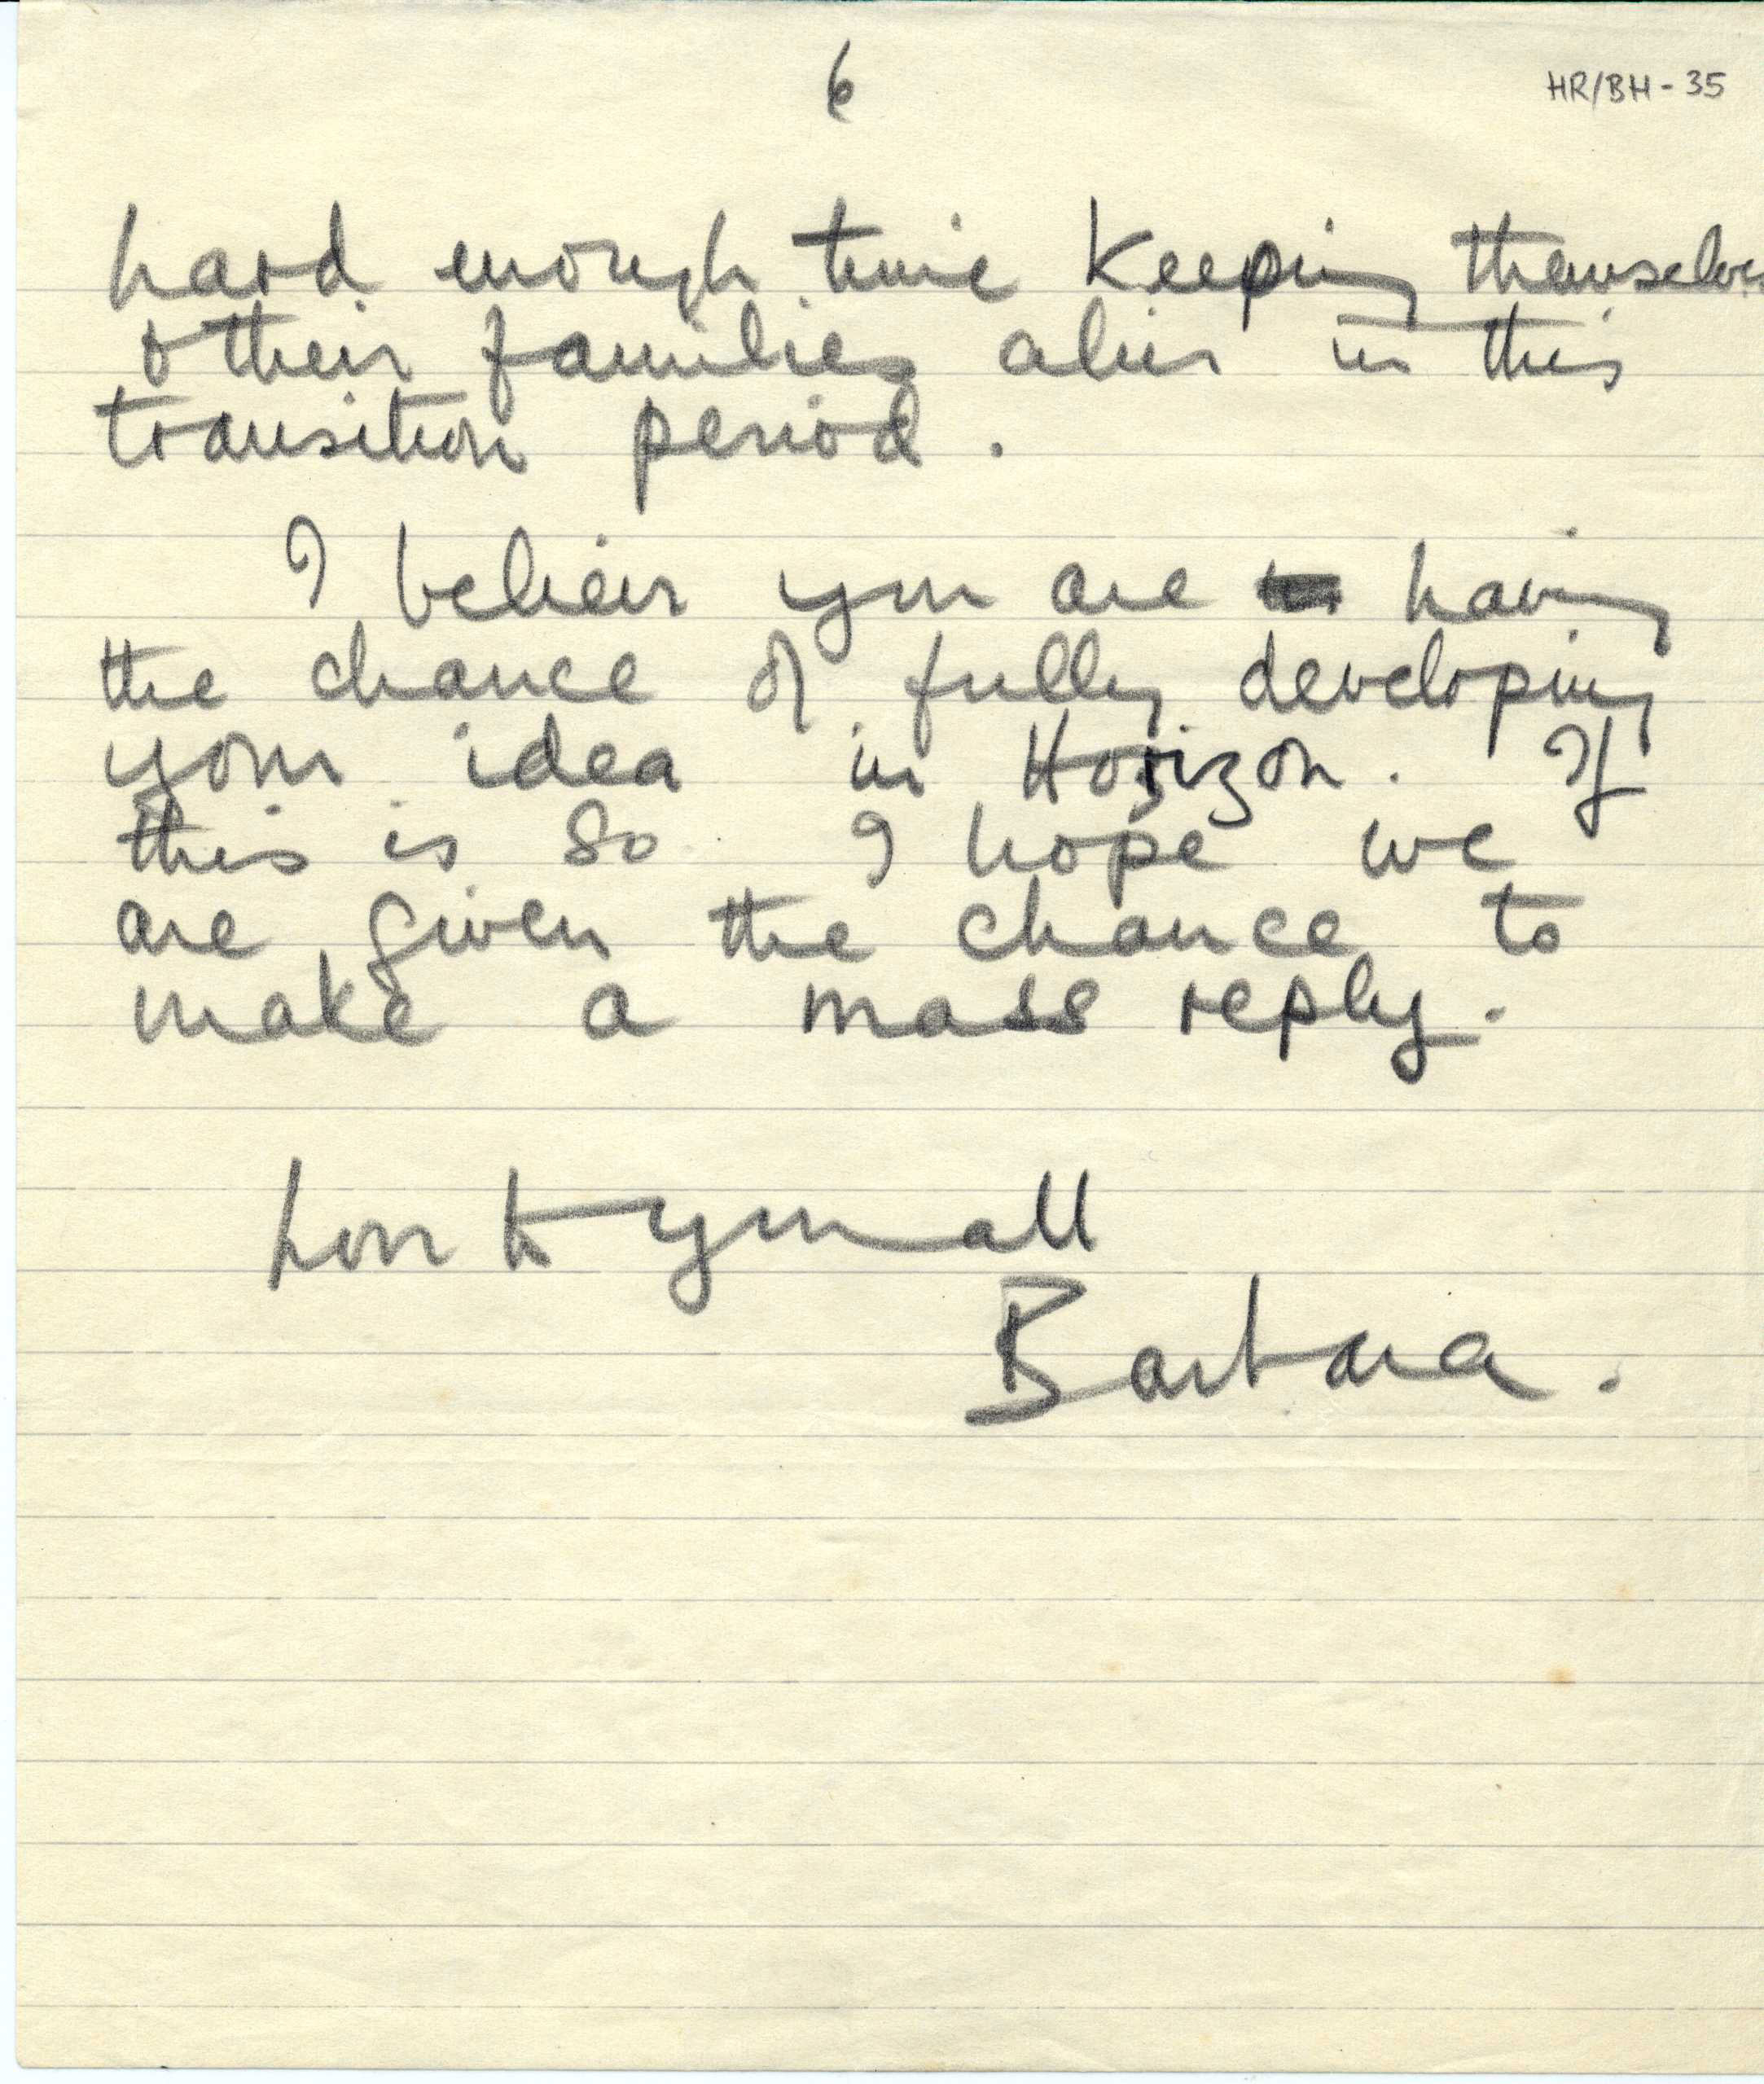 6
HR/BH - 35
hard enough time keeping themselves
& their families alive in this
transition period.
I believe you are having
the chance of fully developing
your idea in Horizon. If
this is so I hope we
are given the chance to
make a mass reply.
Love to you all
Barbara.